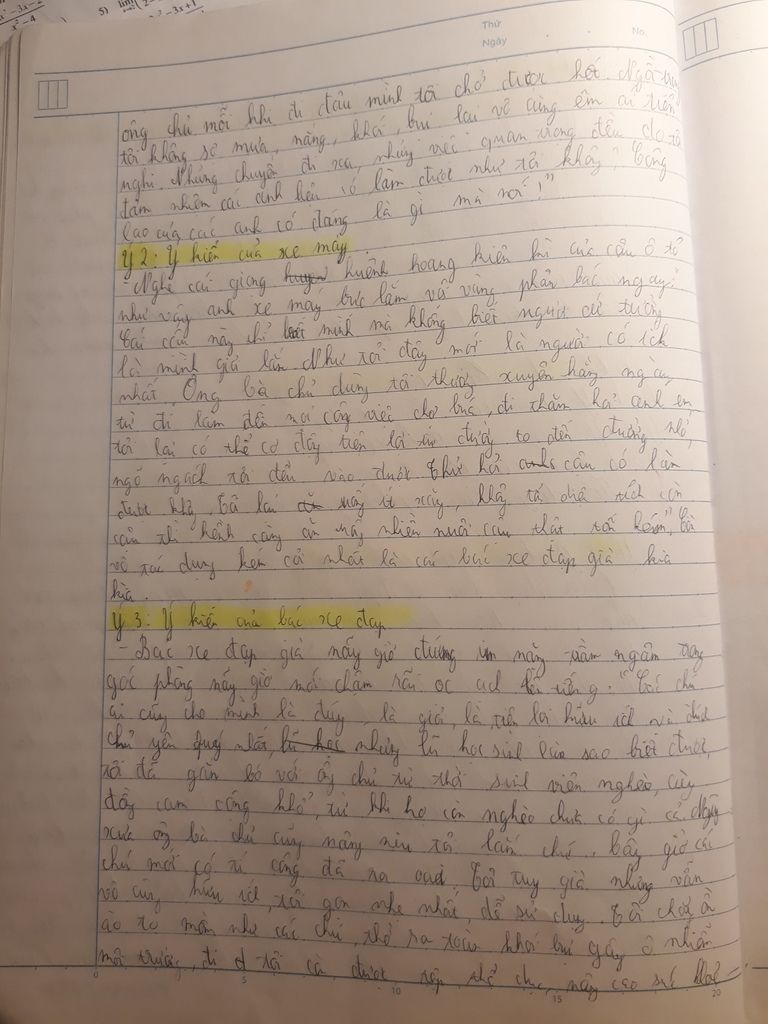 x² - 3x - 2
x² - 4
5) lim
x² - 3x + 1
Thứ
Ngày
No.
ông chủ mỗi khi đi đâu mình tôi chở được hết. Ngồi trong
tôi không sợ mưa, nắng, khói, bụi lại vô cùng êm ái tiện
nghi. Những chuyến đi xa, những việc quan trọng đều do tôi
đảm nhiệm các anh liệu có làm được như tôi không? Công
lao của các anh có đáng là gì mà nói!"
Ý 2: Ý kiến của xe máy.
- Nghe cái giọng huênh hoang kiêu kì của cậu ô tô
như vậy anh xe máy bực lắm vội vàng phản bác ngay:
cậu này chỉ biết mình mà không biết người cứ tưởng
là mình giỏi lắm. Như tôi đây mới là người có ích
nhất. Ông bà chủ dùng tôi thường xuyên hằng ngày,
từ đi làm đến nơi công việc chợ búa, đi thăm hỏi anh em,
tôi lại có thể cơ động tiện lợi từ đường to đến đường nhỏ,
ngõ ngách tôi đều vào được. Thử hỏi cậu có làm
được không, Tôi lại ít xăng, không tốn diện tích còn
cậu thì kềnh càng ăn xăng nhiều nuôi cậu thật tốn kém",
vô tác dụng kém cỏi nhất là cái bác xe đạp già kia
kìa.
Ý 3: Ý kiến của bác xe đạp
- Bác xe đạp già nãy giờ đứng im lặng trầm ngâm trong
góc phòng nãy giờ mới chậm rãi lên tiếng: "Các chú
ai cũng cho mình là đúng, là giỏi, là tiện lợi hữu ích và được
chủ yêu quý nhất, những học sinh sao biết được,
tôi đã gắn bó với ông chủ từ thời sinh viên nghèo, đầy
cam cộng khổ, từ khi họ còn nghèo chưa có gì cả. Ngày
xưa ông bà chủ cũng nâng niu tôi lắm chứ, bây giờ các
chú mới có tí công đã ra oai, Tôi tuy già nhưng vẫn
vô cùng hữu ích, tôi gọn nhẹ nhất, dễ sử dụng. Tôi chả ồn
ào to mồm như các chú, thở ra toàn khói bụi gây ô nhiễm
môi trường, đi tôi còn được tập thể dục, nâng cao sức khoẻ
0 5 10 15 20